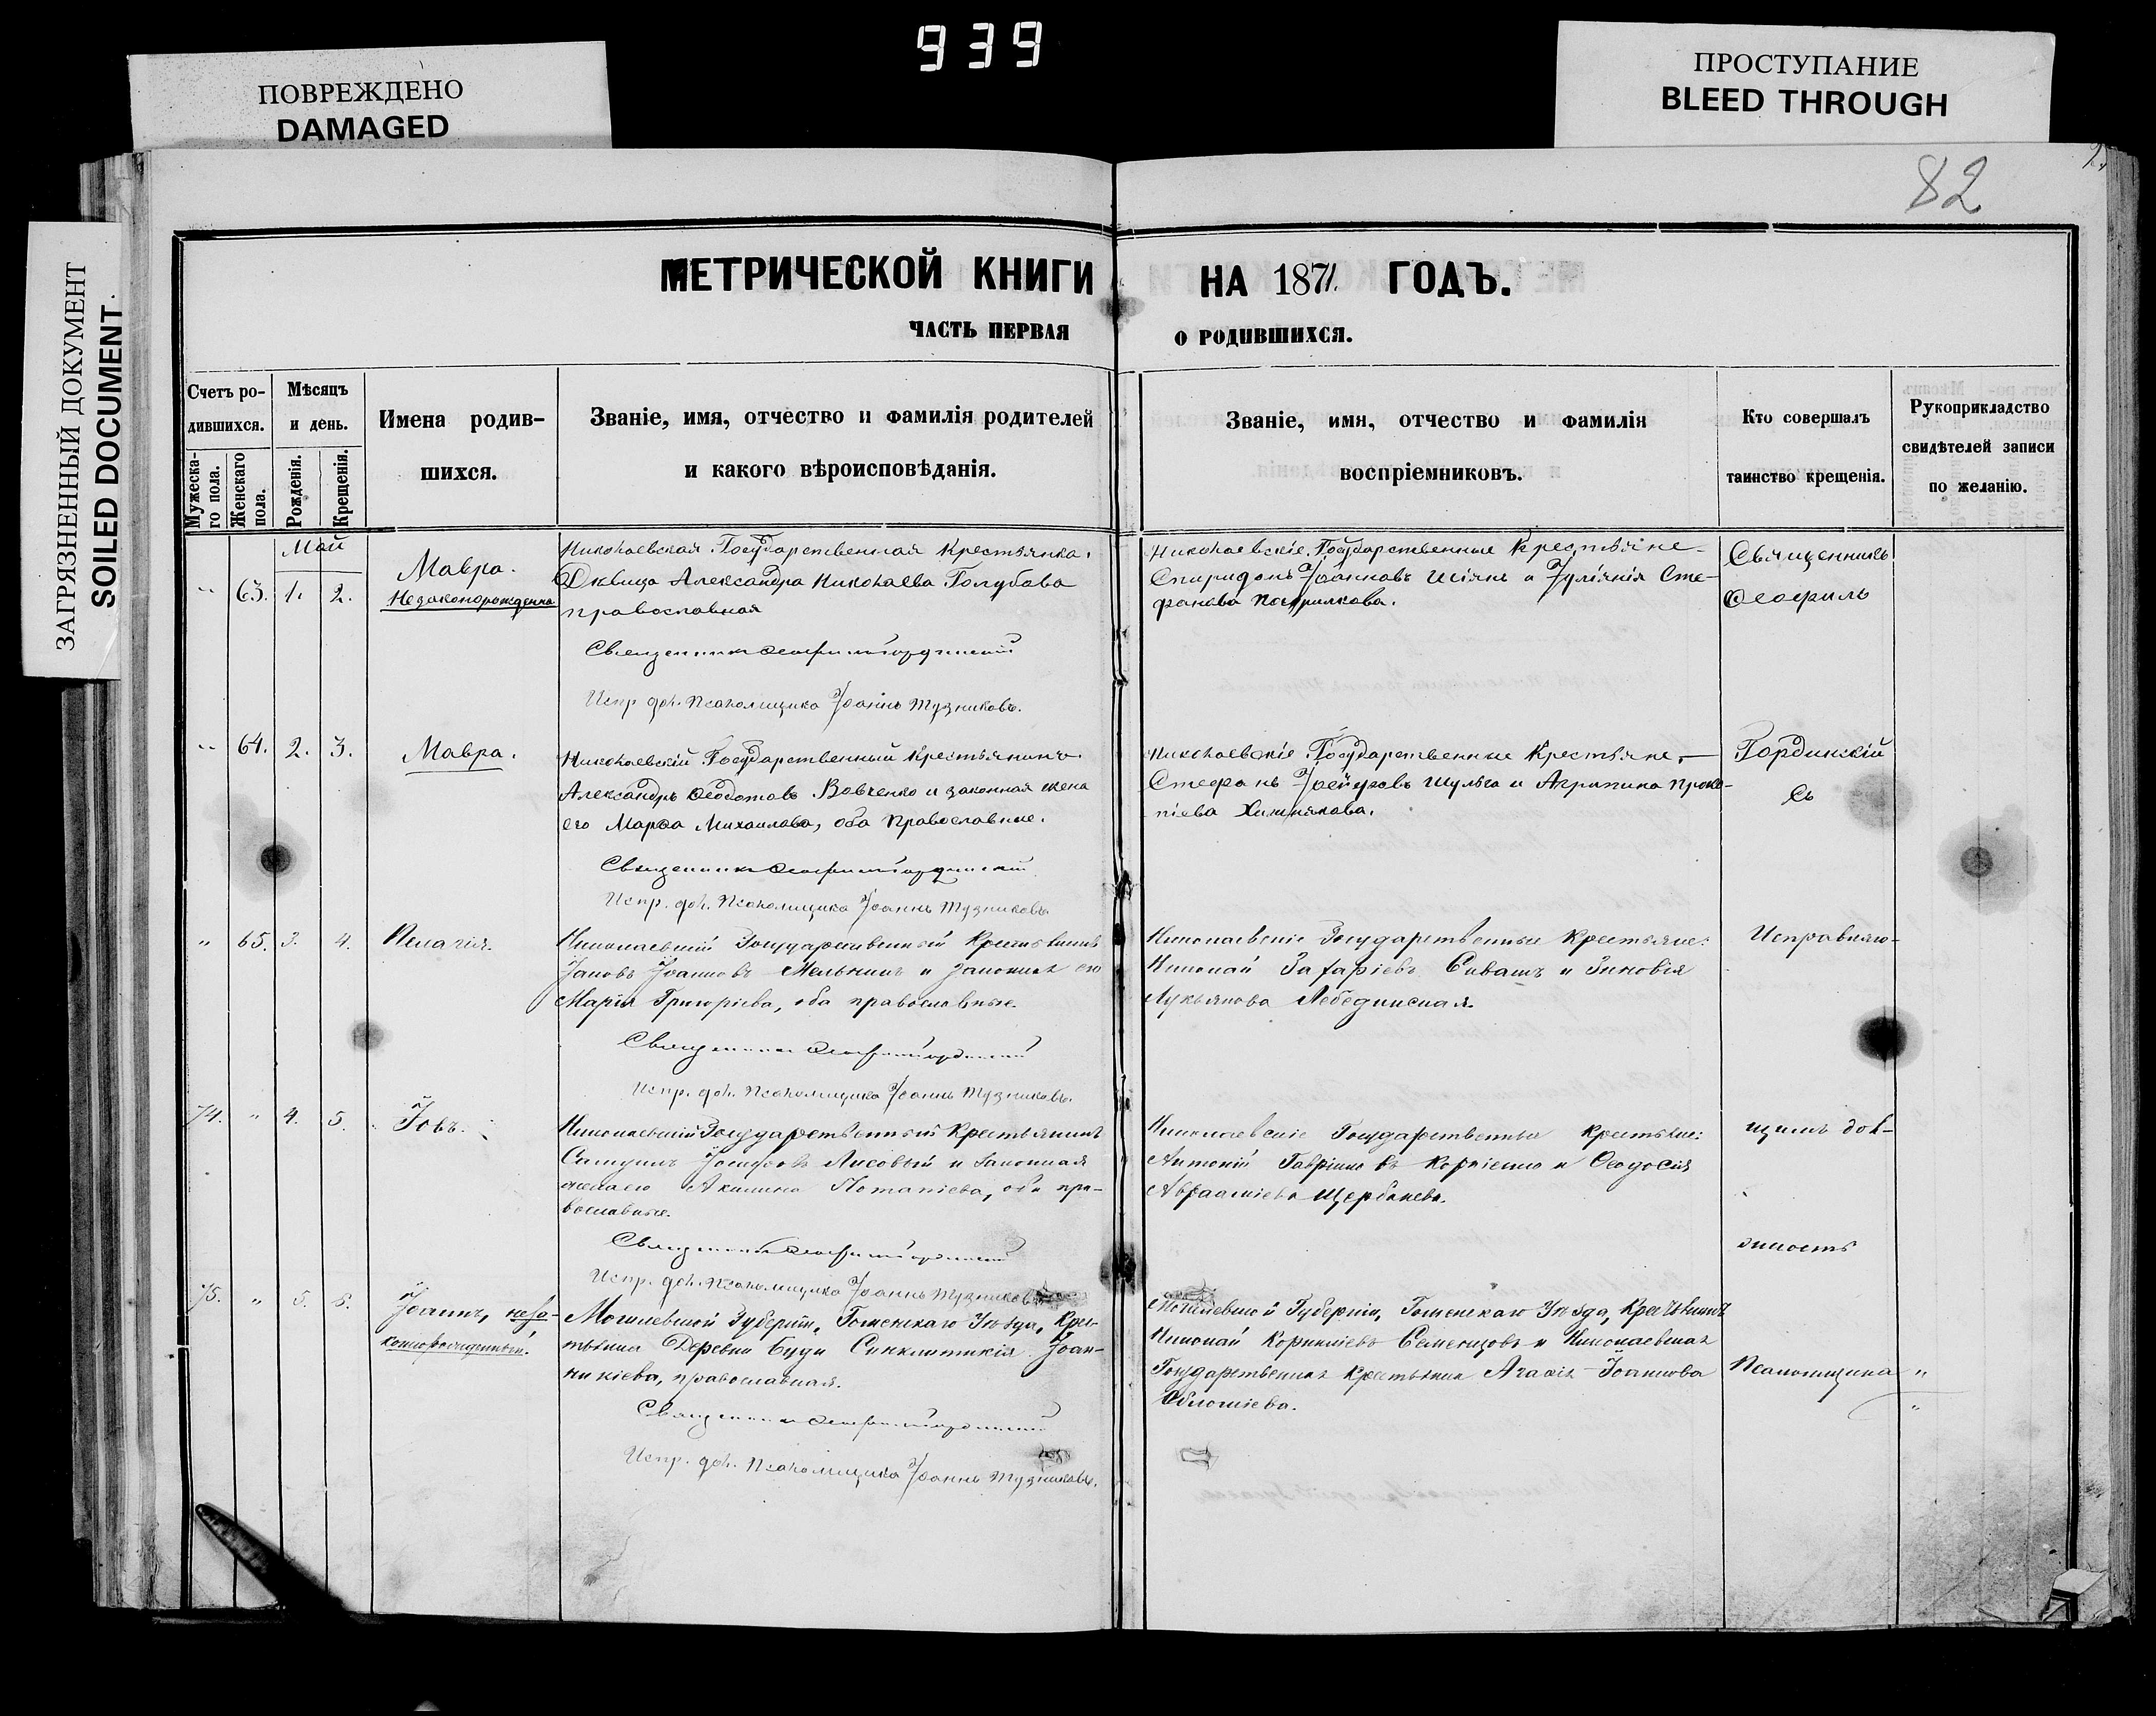 939
ПОВРЕЖДЕНО
DAMAGED
ПРОСТУПАНИЕ
BLEED THROUGH
ЗАГРЯЗНЕННЫЙ ДОКУМЕНТ
SOILED DOCUMENT
82
МЕТРИЧЕСКОЙ КНИГИ НА 1871 ГОДЪ.
ЧАСТЬ ПЕРВАЯ О РОДИВШИХСЯ.
Счетъ ро-
дившихся.
Мужеска-
го пола.
Женскаго
пола.
Мѣсяцъ
и день.
Рожденія.
Крещенія.
Имена родив-
шихся.
Званіе, имя, отчество и фамилія родителей
и какого вѣроисповѣданія.
Званіе, имя, отчество и фамилія
воспріемниковъ.
Кто совершалъ
таинство крещенія.
Рукоприкладство
свидѣтелей записи
по желанію.
Май
" 63. 1. 2.
Мавра.
Незаконорожденна
Николаевская Государственная Крестьянка,
Дѣвица Александра Николаева Голубова
православная
Священникъ Ѳеофилъ Гординскій
Испр. дол. Псаломщика Іоаннъ Тузниковъ.
Николаевскіе Государственные Крестьяне
Спиридонъ Іоанновъ и Іуліянія Сте-
фанова
Священникъ
Ѳеофилъ
" 64. 2. 3.
Мавра.
Николаевскій Государственный Крестьянинъ
Александръ Ѳеодотовъ Вовченко и законная жена
его Марѳа Михаилова, оба Православные.
Священникъ Ѳеофилъ Гординскій
Испр. дол. Псаломщика Іоаннъ Тузниковъ.
Николаевскіе Государственные Крестьяне,
Стефанъ Шульга и Агрипина Проко-
піева
Гординскій
Съ
" 65. 3. 4.
Пелагія.
Николаевскій Государственный Крестьянинъ
Іаковъ Іоанновъ Мельникъ и законная его
Марія Григоріева, оба православные.
Священникъ Ѳеофилъ Гординскій
Испр. дол. Псаломщика Іоаннъ Тузниковъ.
Николаевскіе Государственные Крестьяне:
Николай Захаріевъ Сивашъ и Зиновія
Лукьянова Лебединская.
Исправляю-
74. " 4. 5.
Іовъ.
Николаевскій Государственный Крестьянинъ
Іосифовъ Лисовый и законная
жена его Акилина Потапіева, оба пра-
вославные.
Священникъ Ѳеофилъ Гординскій
Испр. дол. Псаломщика Іоаннъ Тузниковъ
Николаевскіе Государственные крестьяне:
Антоній Гавріиловъ Корніенко и Ѳеодосія
Авраамiева Щербакова.
щимъ дол-
жность
75. " 5. 6.
Іоаннъ, неза-
коннорожденный.
Могилевской Губерніи, Гомельскаго Уѣзда, Кре-
стьянка Деревни Буди Синклитикія Іоан-
никіева, православная.
Священникъ Ѳеофилъ Гординскій
Испр. дол. Псаломщика Іоаннъ Тузниковъ.
Могилевской Губерніи, Гомельскаго Уѣзда, Крестьянинъ
Николай Корниліевъ Семенцовъ и Николаевская
Государственная Крестьянка Агафія Іоаннова
Псаломщика "
"